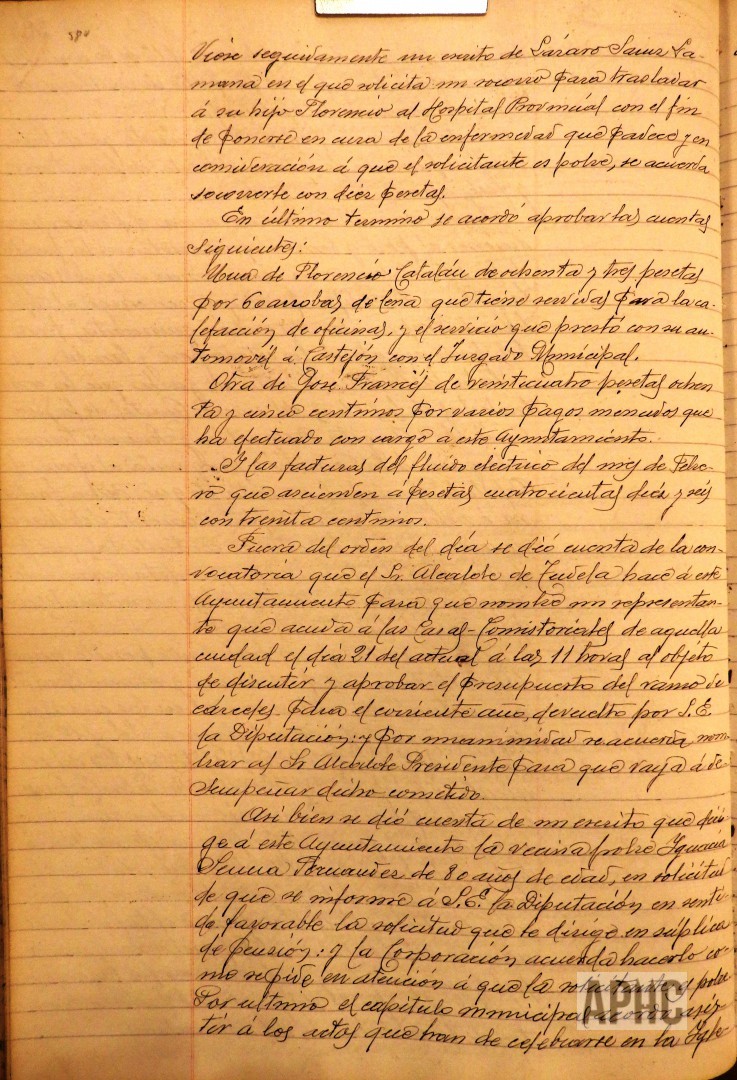 Viose seguidamente un escrito de Lázaro Sainz La-
mana en el que solicita un socorro para trasladar
á su hijo Florencio al Hospital Provincial con el fin
de ponerse en cura de la enfermedad que padece y en
consideración á que el solicitante es pobre, se acuerda
socorrerle con diez pesetas.
En último termino se acordó aprobar las cuentas
siguientes:
Una de Florencio Catalán de ochenta y tres pesetas
por 60 arrobas de leña que tiene servidas para la ca-
lefacción de oficinas, y el servicio que prestó con su au-
tomovil á Castejón con el Juzgado Municipal.
Otra de José Francés de veinticuatro pesetas ochen
ta y cinco centimos por varios pagos menudos que
ha efectuado con cargo á este Ayuntamiento.
Y las facturas del fluido eléctrico del mes de Febre-
ro que ascienden á pesetas cuatrocientas diez y seis
con treinta centimos.
Fuera del orden del día se dió cuenta de la con-
vocatoria que el Sr. Alcalde de Tudela hace á este
Ayuntamiento para que nombre un representan-
te que acuda á las Casas-Consistoriales de aquella
ciudad el día 21 del actual á las 11 horas al objeto
de discutir y aprobar el presupuesto del ramo de
cárceles para el corriente año, devuelto por S.E.
la Diputación: y por unanimidad se acuerda nom-
brar al Sr. Alcalde Presidente para que vaya á de
sempeñar dicho cometido.
Asi bien se dió cuenta de un escrito que diri-
ge á este Ayuntamiento la vecina pobre Ignacia
Fernandez de 80 años de edad, en solicitud
de que se informe á S.E. la Diputación en senti-
do favorable la solicitud que le dirige en súplica
de pensión: y la Corporación acuerda hacerlo co-
mo se pide en atención á que la solicitante es pobre
Por ultimo el capitulo municipal acordó asis
tir á los actos que han de celebrarse en la Igle
APHC